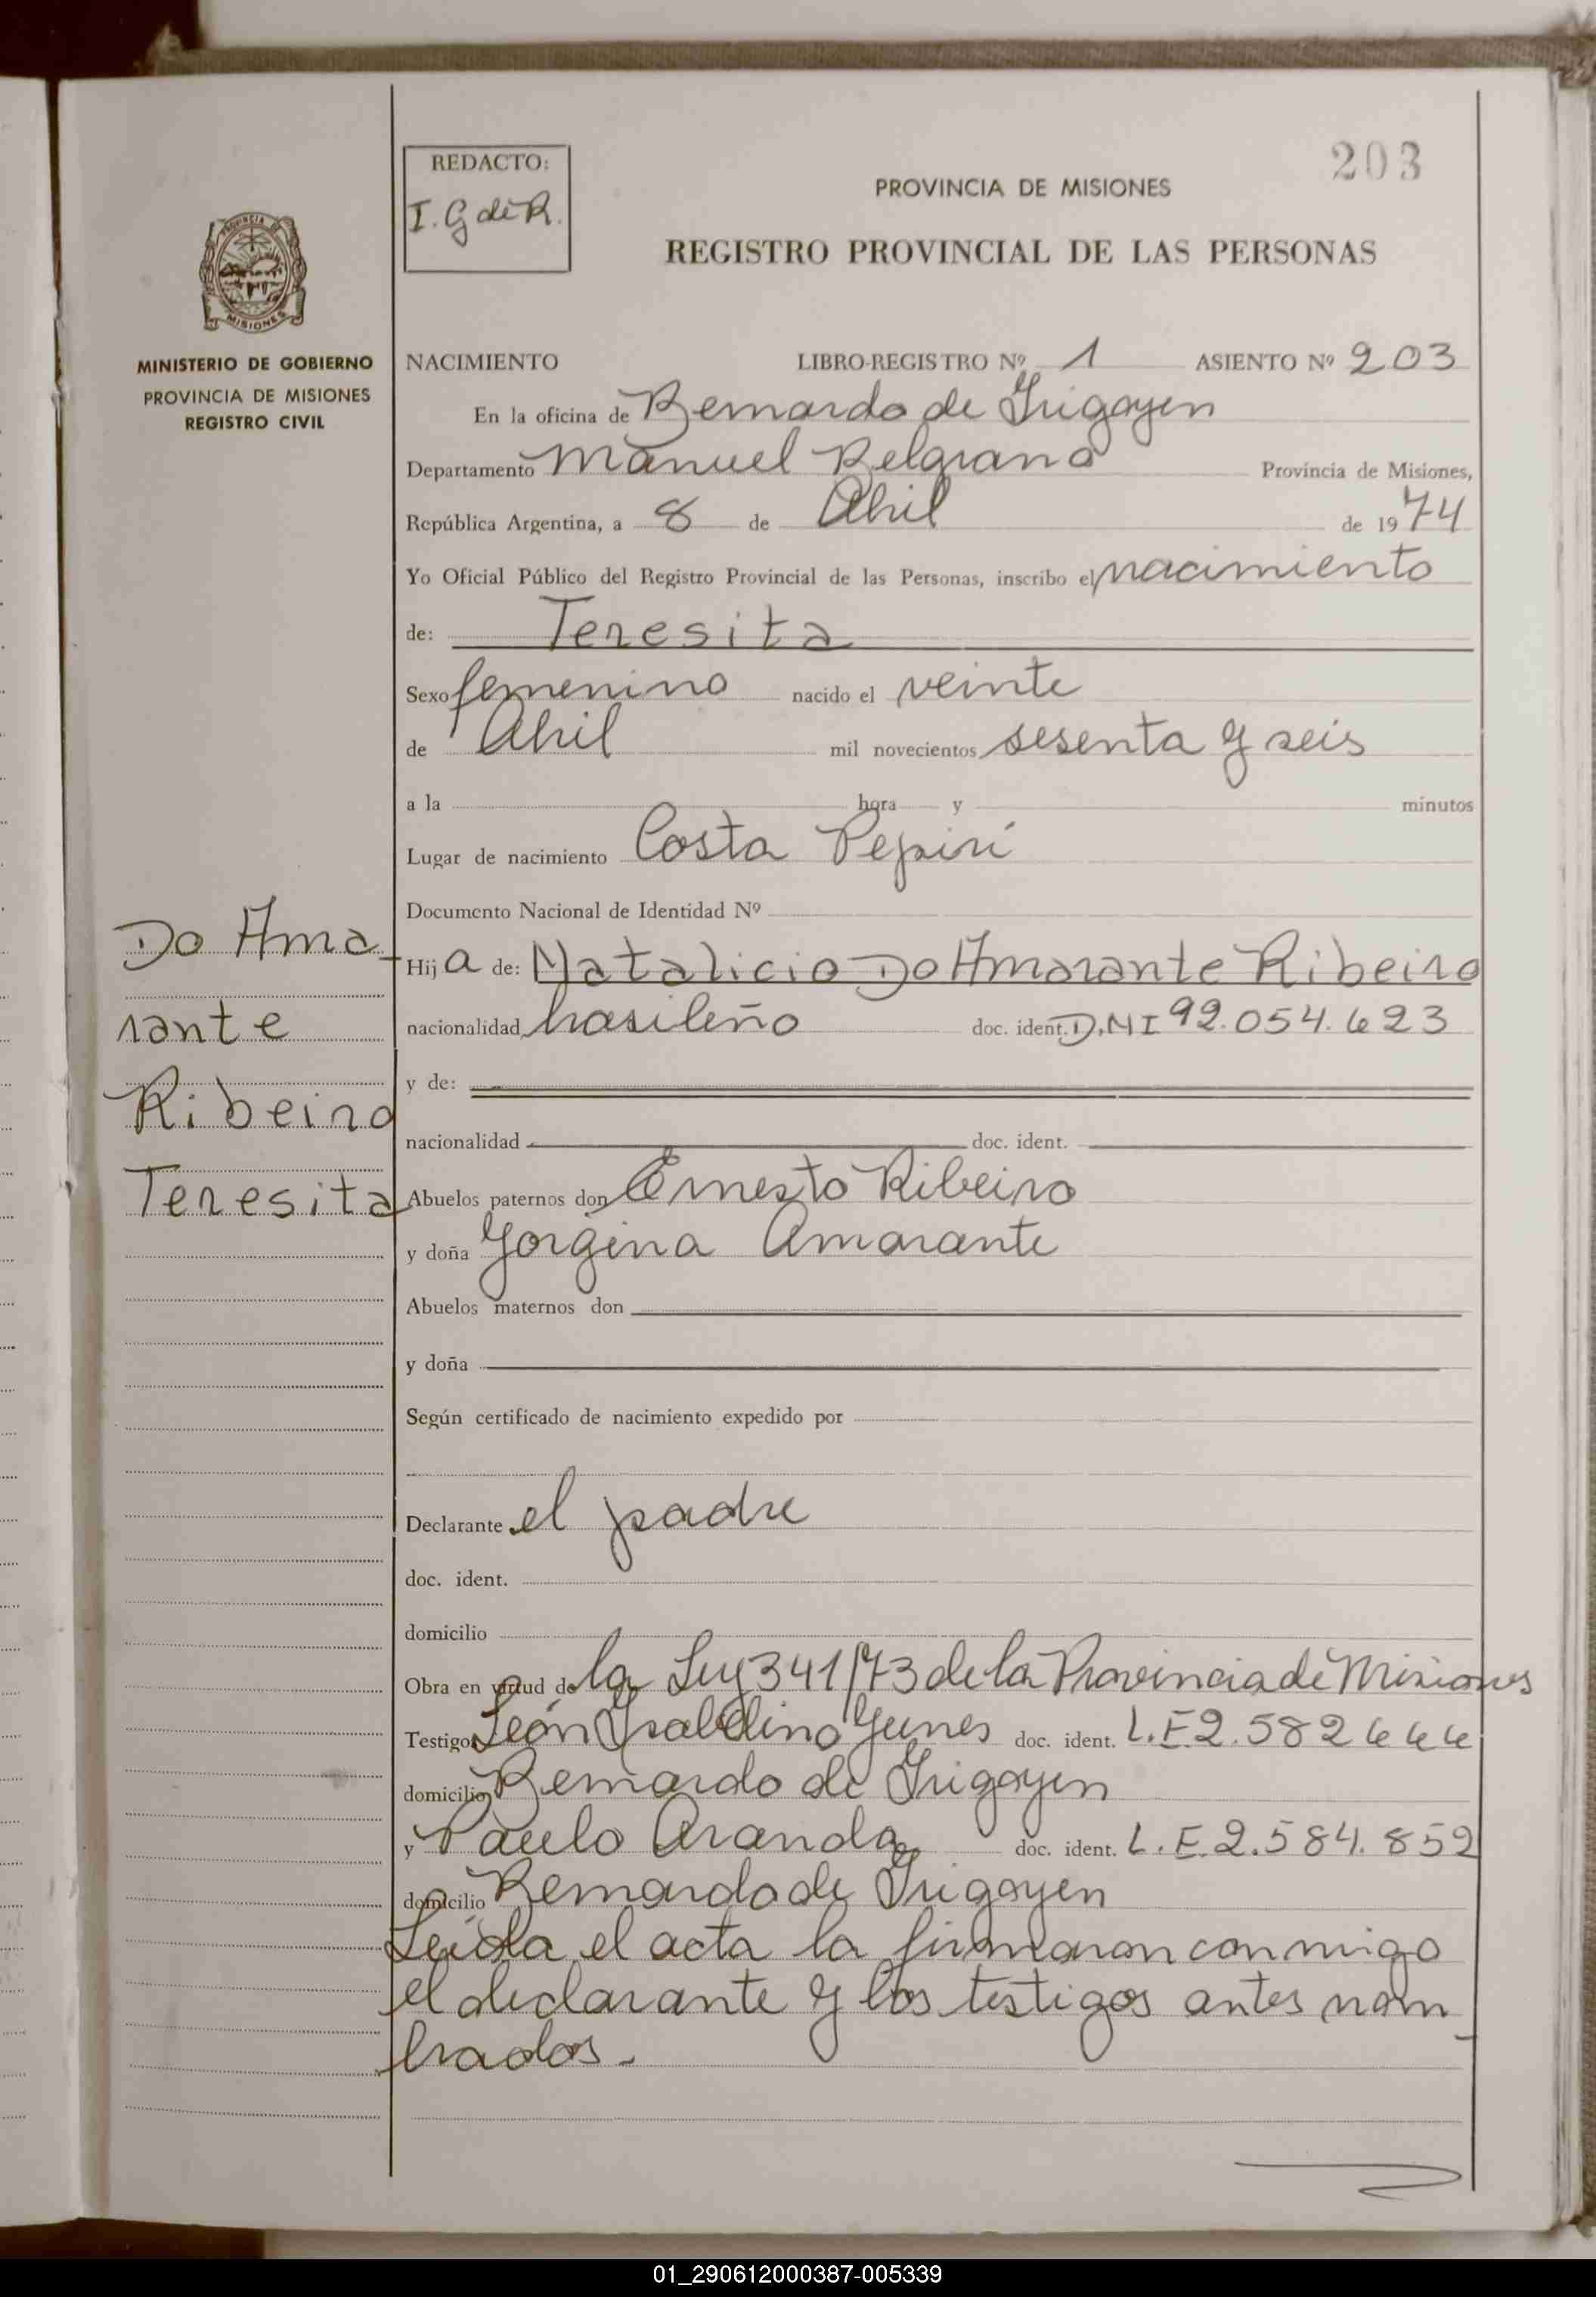 203
REDACTO:
I. G de R.
PROVINCIA DE MISIONES
REGISTRO PROVINCIAL DE LAS PERSONAS
PROVINCIA DE
MISIONES
MINISTERIO DE GOBIERNO
PROVINCIA DE MISIONES
REGISTRO CIVIL
NACIMIENTO LIBRO-REGISTRO Nº 1 ASIENTO Nº 203
En la oficina de Bernardo de Irigoyen
Departamento Manuel Belgrano Provincia de Misiones,
República Argentina, a 8 de Abril de 1974
Yo Oficial Público del Registro Provincial de las Personas, inscribo el nacimiento
de: Teresita
Sexo femenino nacido el veinte
de Abril mil novecientos sesenta y seis
a la hora y minutos
Lugar de nacimiento Costa Pepirí
Documento Nacional de Identidad Nº
Do Ama-
rante
Ribeiro
Teresita
Hija de: Natalicio Do Amarante Ribeiro
nacionalidad brasileño doc. ident. D.N I 92.054.623
y de:
nacionalidad doc. ident.
Abuelos paternos don Ernesto Ribeiro
y doña Gorgina Amarante
Abuelos maternos don
y doña
Según certificado de nacimiento expedido por
Declarante el padre
doc. ident.
domicilio
Obra en virtud de la Ley 341/73 de la Provincia de Misiones
Testigos León Isabelino Yunes doc. ident. L.E 2.582 666
domicilio Bernardo de Irigoyen
y Paulo Aranda doc. ident. L.E. 2.584.852
domicilio Bernardo de Irigoyen
Leída el acta la firmaron conmigo
el declarante y los testigos antes nom-
brados.-
01_290612000387-005339